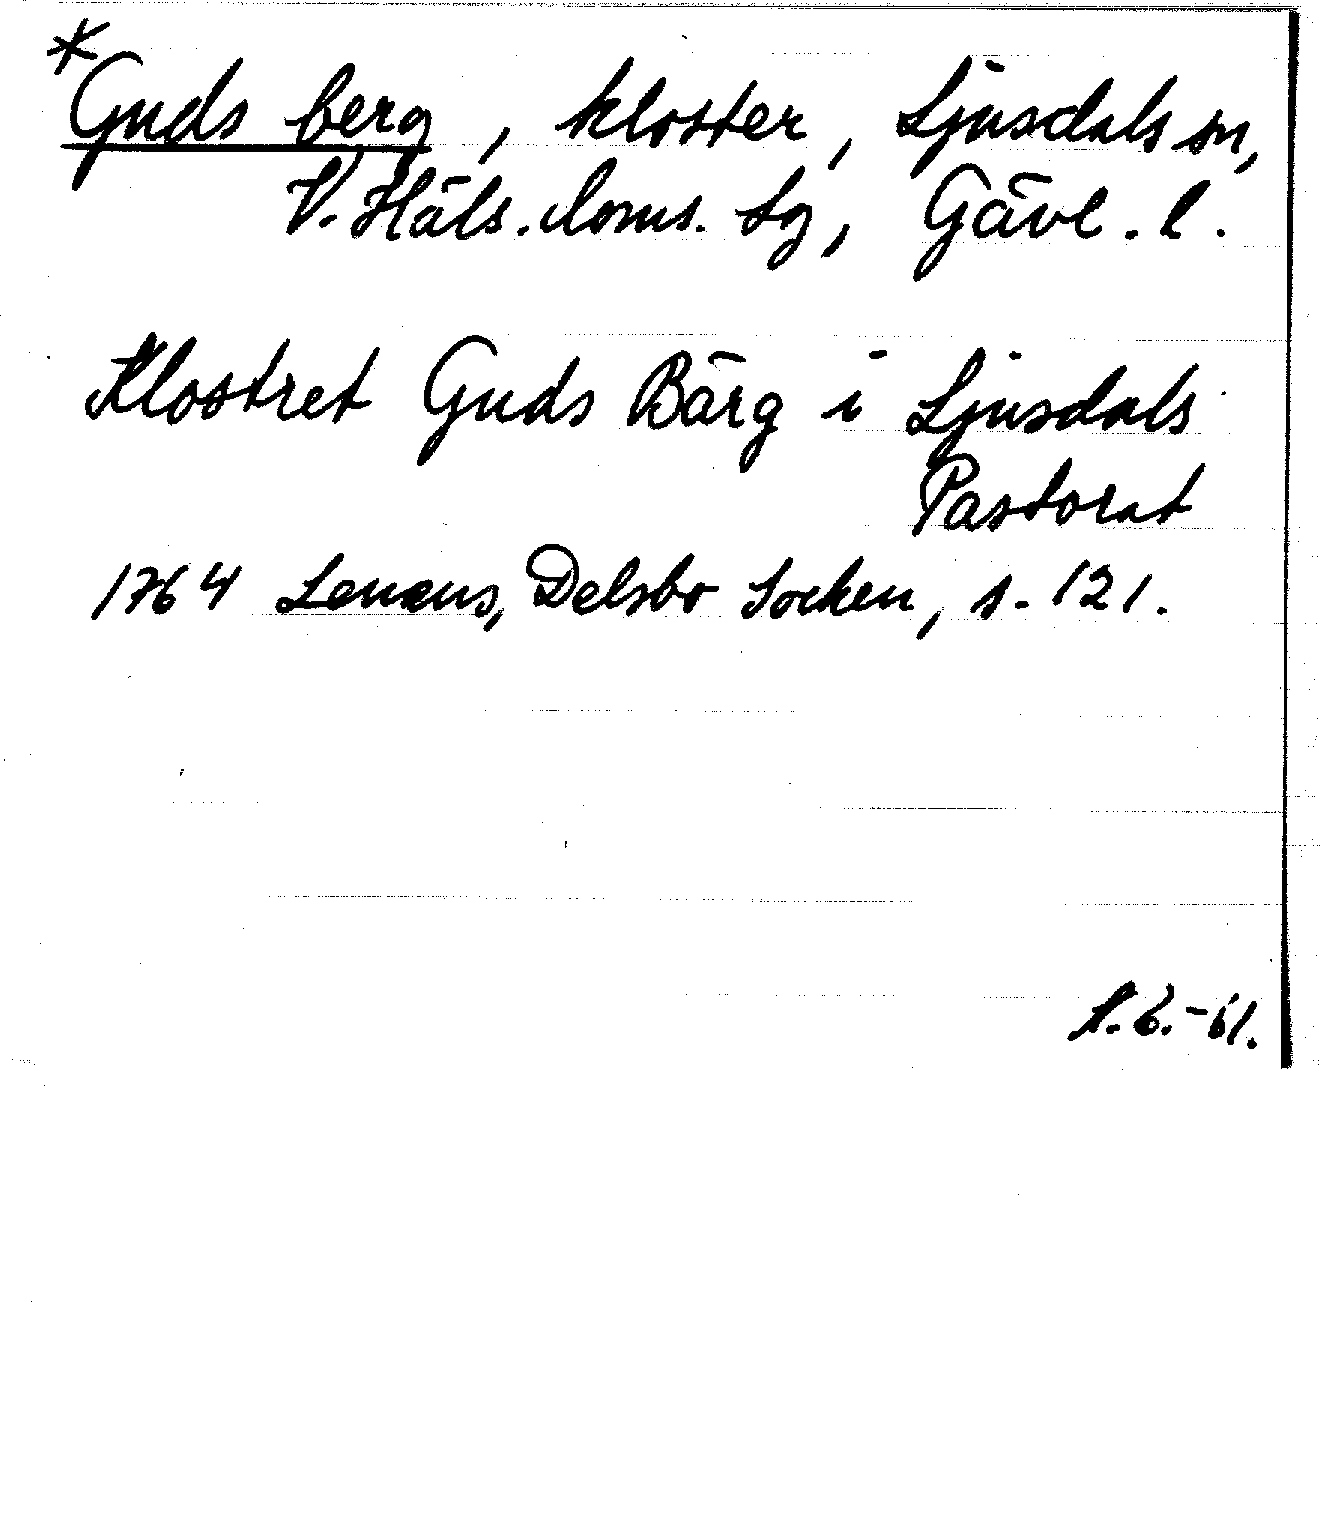 *Guds berg, kloster, Ljusdals sn,
V. Häls. doms. tg, Gävl. l.
Klostret Guds Bärg i Ljusdals
Pastorat
1764 Lenæus, Delsbo Socken, s. 121.